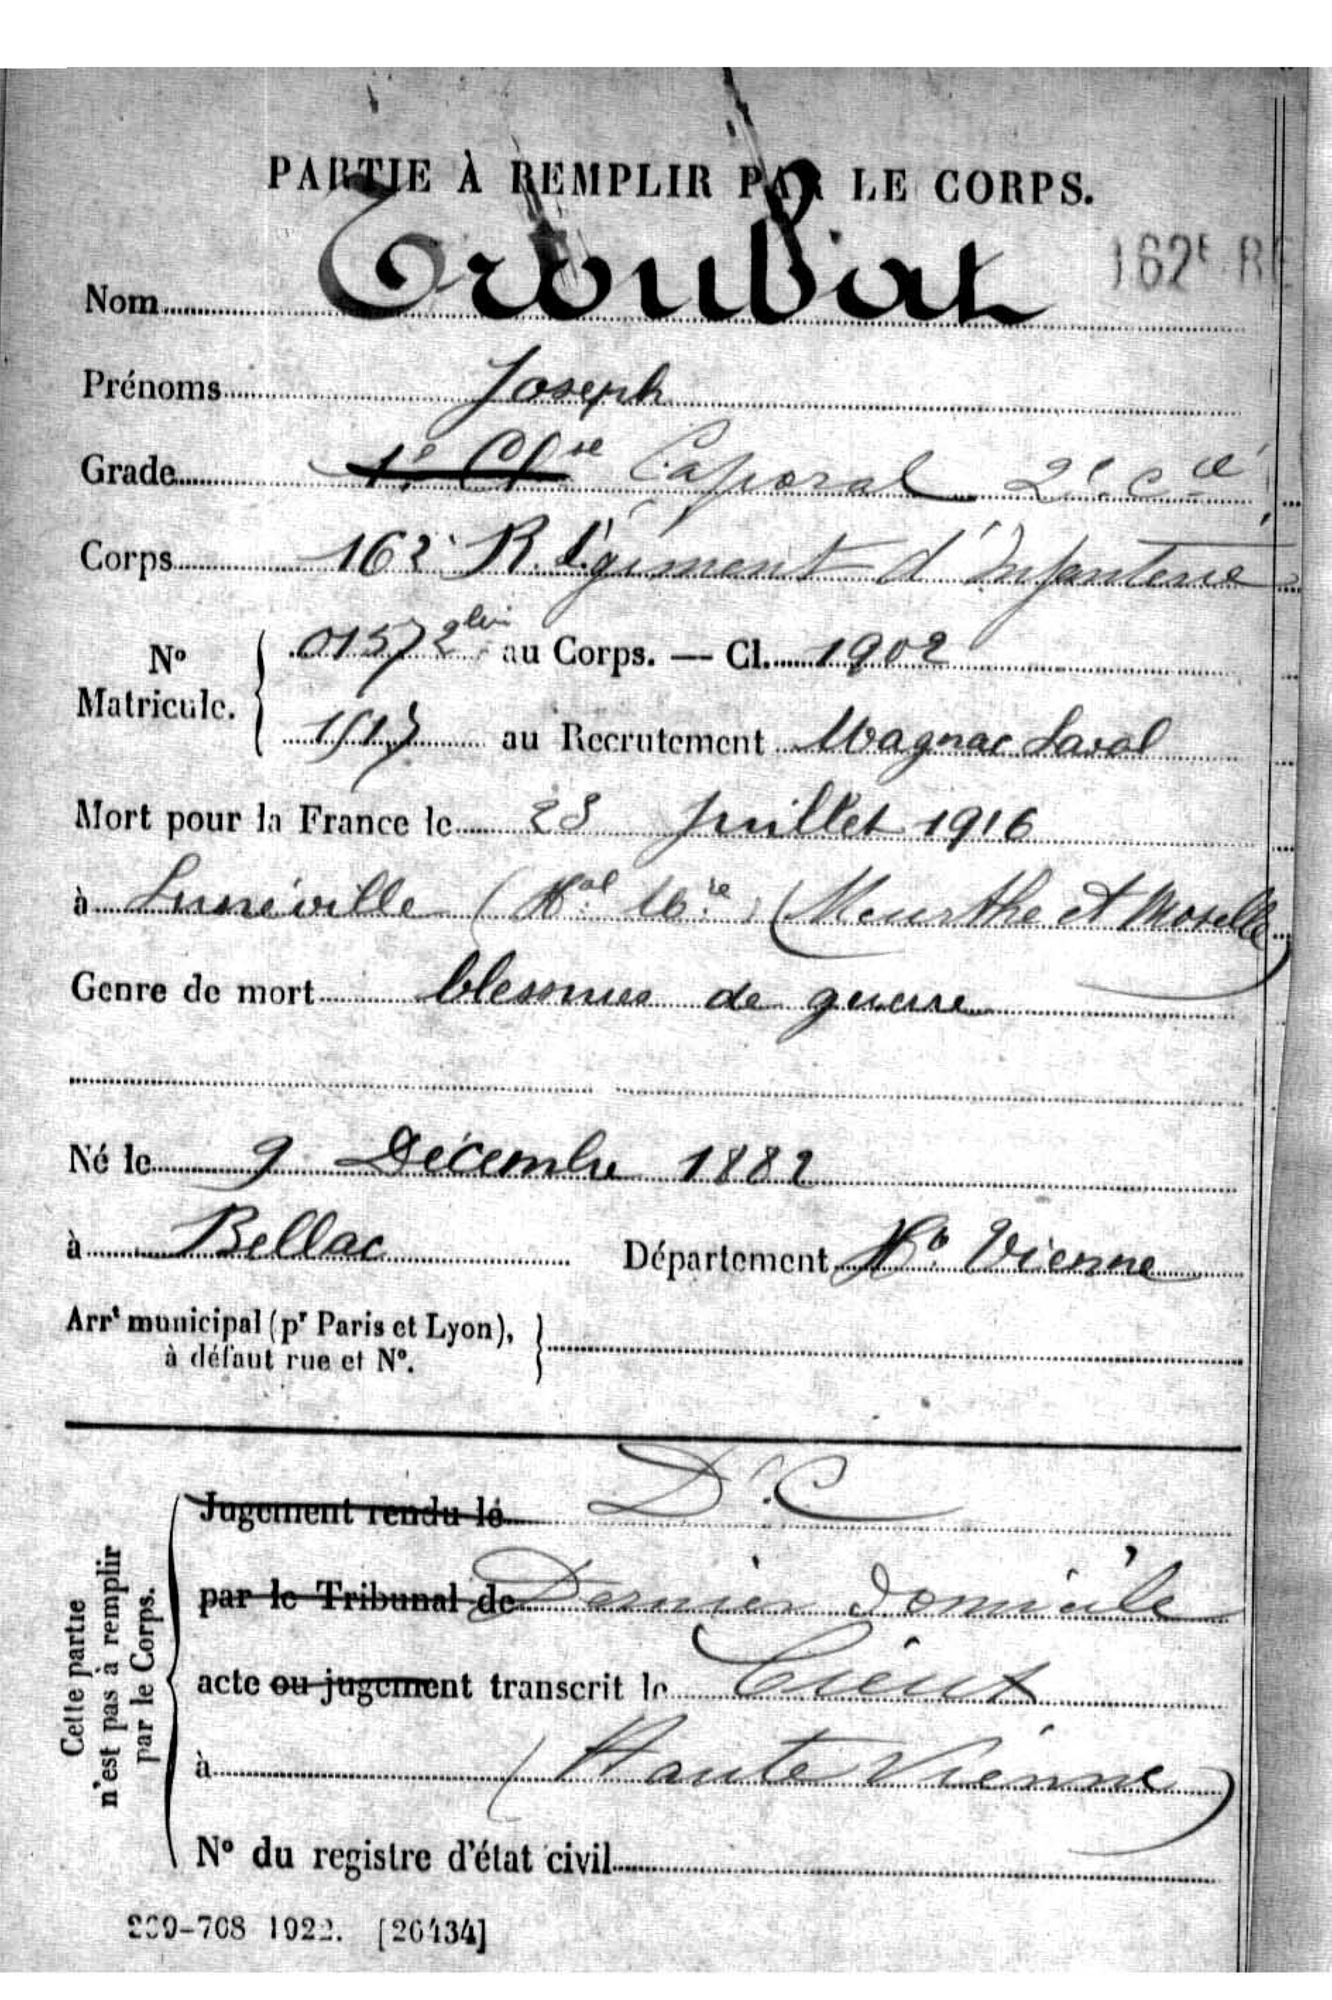 PARTIE À REMPLIR PAR LE CORPS.
162e RE
Nom Troubat
Prénoms Joseph
Grade 1e Clse Caporal 2e Cie
Corps 162e Régiment d'Infanterie
No Matricule. 01572 bis au Corps. — Cl. 1902
au Recrutement Magnac Laval
Mort pour la France le Juillet 1916
à Lunéville (Hal Mre) (Meurthe et Moselle)
Genre de mort blessures de guerre
Né le 9 Décembre 1882
à Bellac Département Hte Vienne
Arrt municipal (pr Paris et Lyon),
à défaut rue et No.
Cette partie
n'est pas à remplir
par le Corps.
Jugement rendu le D.C
par le Tribunal de Dernier domicile
acte ou jugement transcrit le Cieux
à (Haute Vienne)
No du registre d'état civil
[26434]